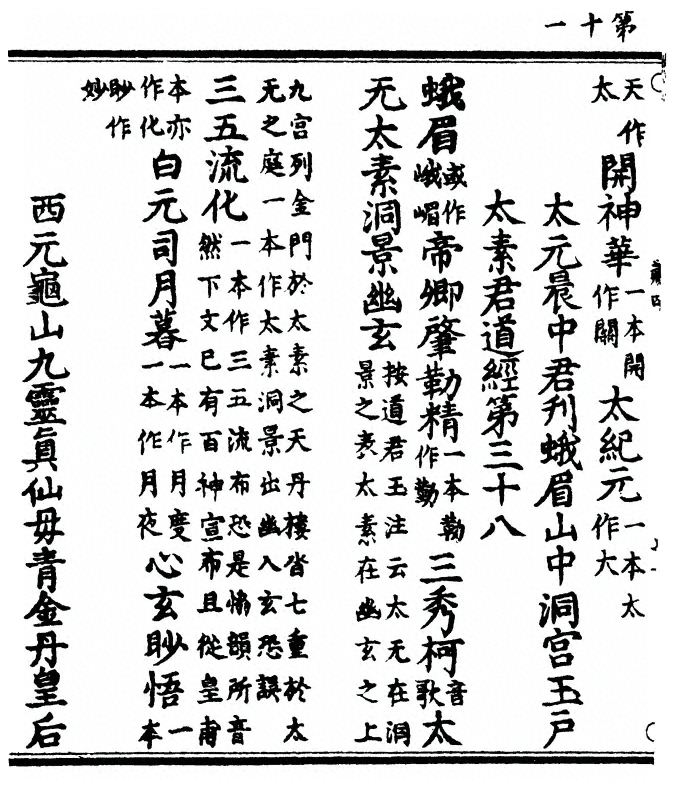 第十一
天作太開神華一本開作闢太紀元一本太作大
太元晨中君刋蛾眉山中洞宫玉戸
太素君道經第三十八
蛾眉或作峨嵋帝卿肇勒精一本勒作勤三秀柯音歌太
无太素洞景幽玄按道君玉注云太无在洞景之表太素在幽玄之上
九宫列金門於太素之天丹樓沓七重於太无之庭一本作太素洞景出幽入玄恐誤
三五流化一本作三五流布恐是協韻所音然下文已有百神宣布且從皇甫
本亦作化白元司月暮一本作月一本作月夜心玄眇悟一本
眇作妙
西元龜山九靈眞仙毋青金丹皇后